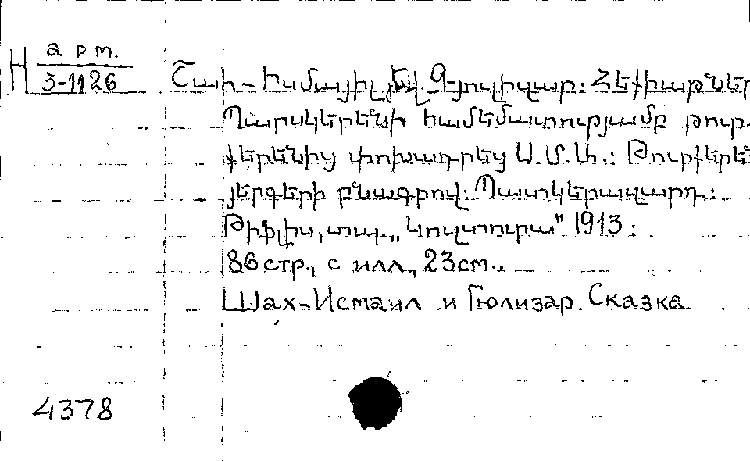 Н арт.
3-1126
Շահ-Իսմայիլ եվ Գյուլիզար: Հեքիաթներ
Պարսկերենի համեմատությամբ թուր-
քերենից փոխադրեց Ա.Մ.Ա.: Թուրքերեն
յերգերի բնագրով: Պատկերազարդ:
Թիֆլիս, տպ. „Կուլտուրա" 1913:
86 стр., с илл., 23см..
Шах-Исмаил и Гюлизар. Сказка
4378